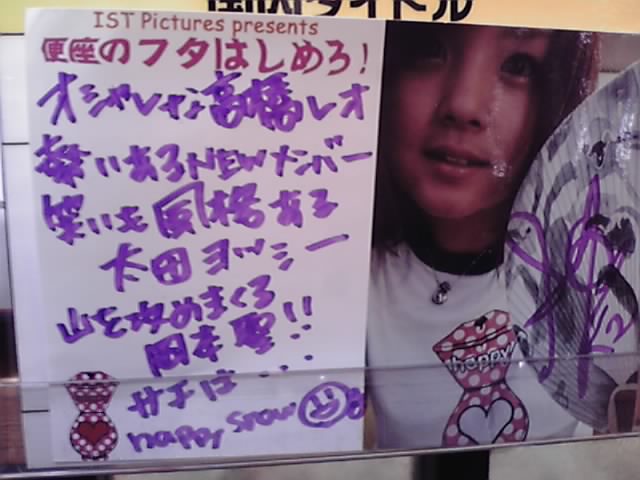 タイトル
IST Pictures presents
便座のフタはしめろ!
オシャレな高橋レオ
勢いあるNEWメンバー
笑いも風格ある
太田ヨッシー
山を攻めまくる
岡本聖!!
サチは・・・
happy snow
happy!